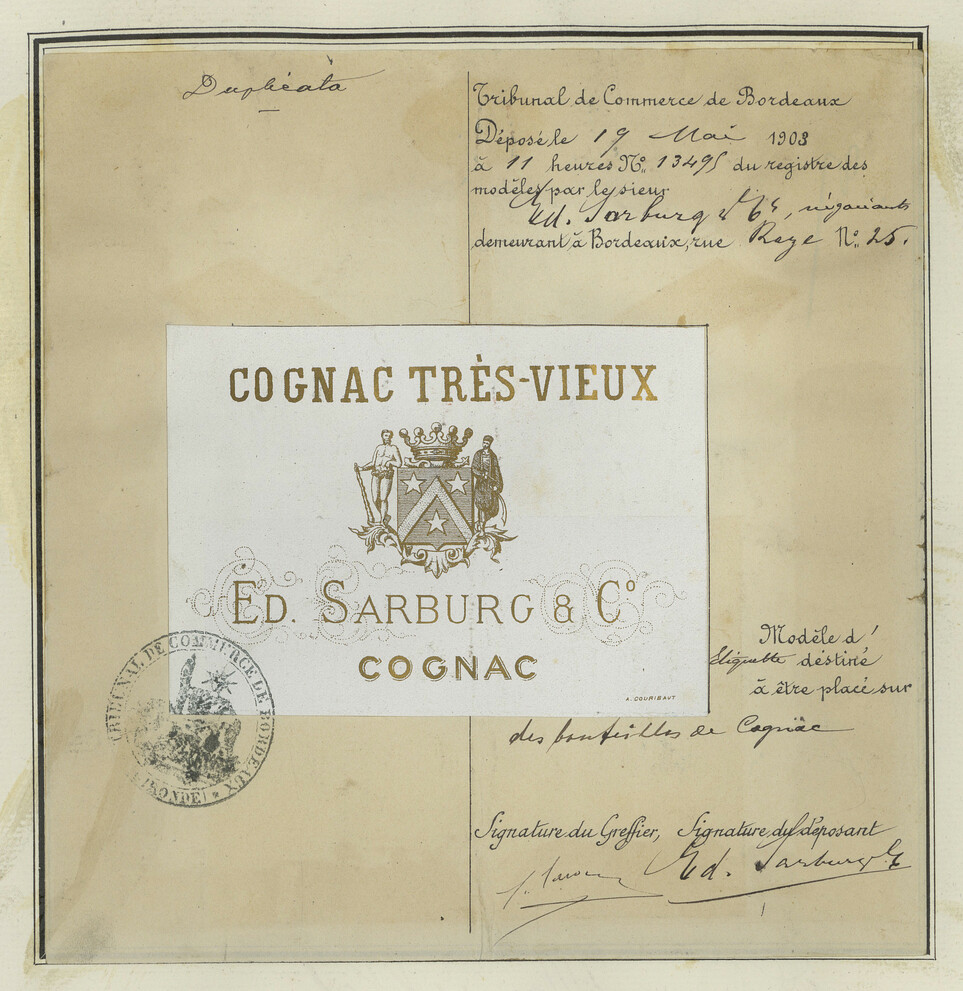 Duplicata
Tribunal de Commerce de Bordeaux
Déposé le 19 Mai 1903
à 11 heures No. 13495 du registre des
modèles par le sieur
Ed. Sarburg & Co, négociants
demeurant à Bordeaux, rue Raze No. 25.
COGNAC TRÈS-VIEUX
ED. SARBURG & Co
COGNAC
A. COURIBAUT
TRIBUNAL DE COMMERCE DE BORDEAUX
(GIRONDE)
Modèle d'
Etiquette destiné
à être placé sur
des bouteilles de Cognac
Signature du Greffier, Signature du déposant
Ed. Sarburg & Co